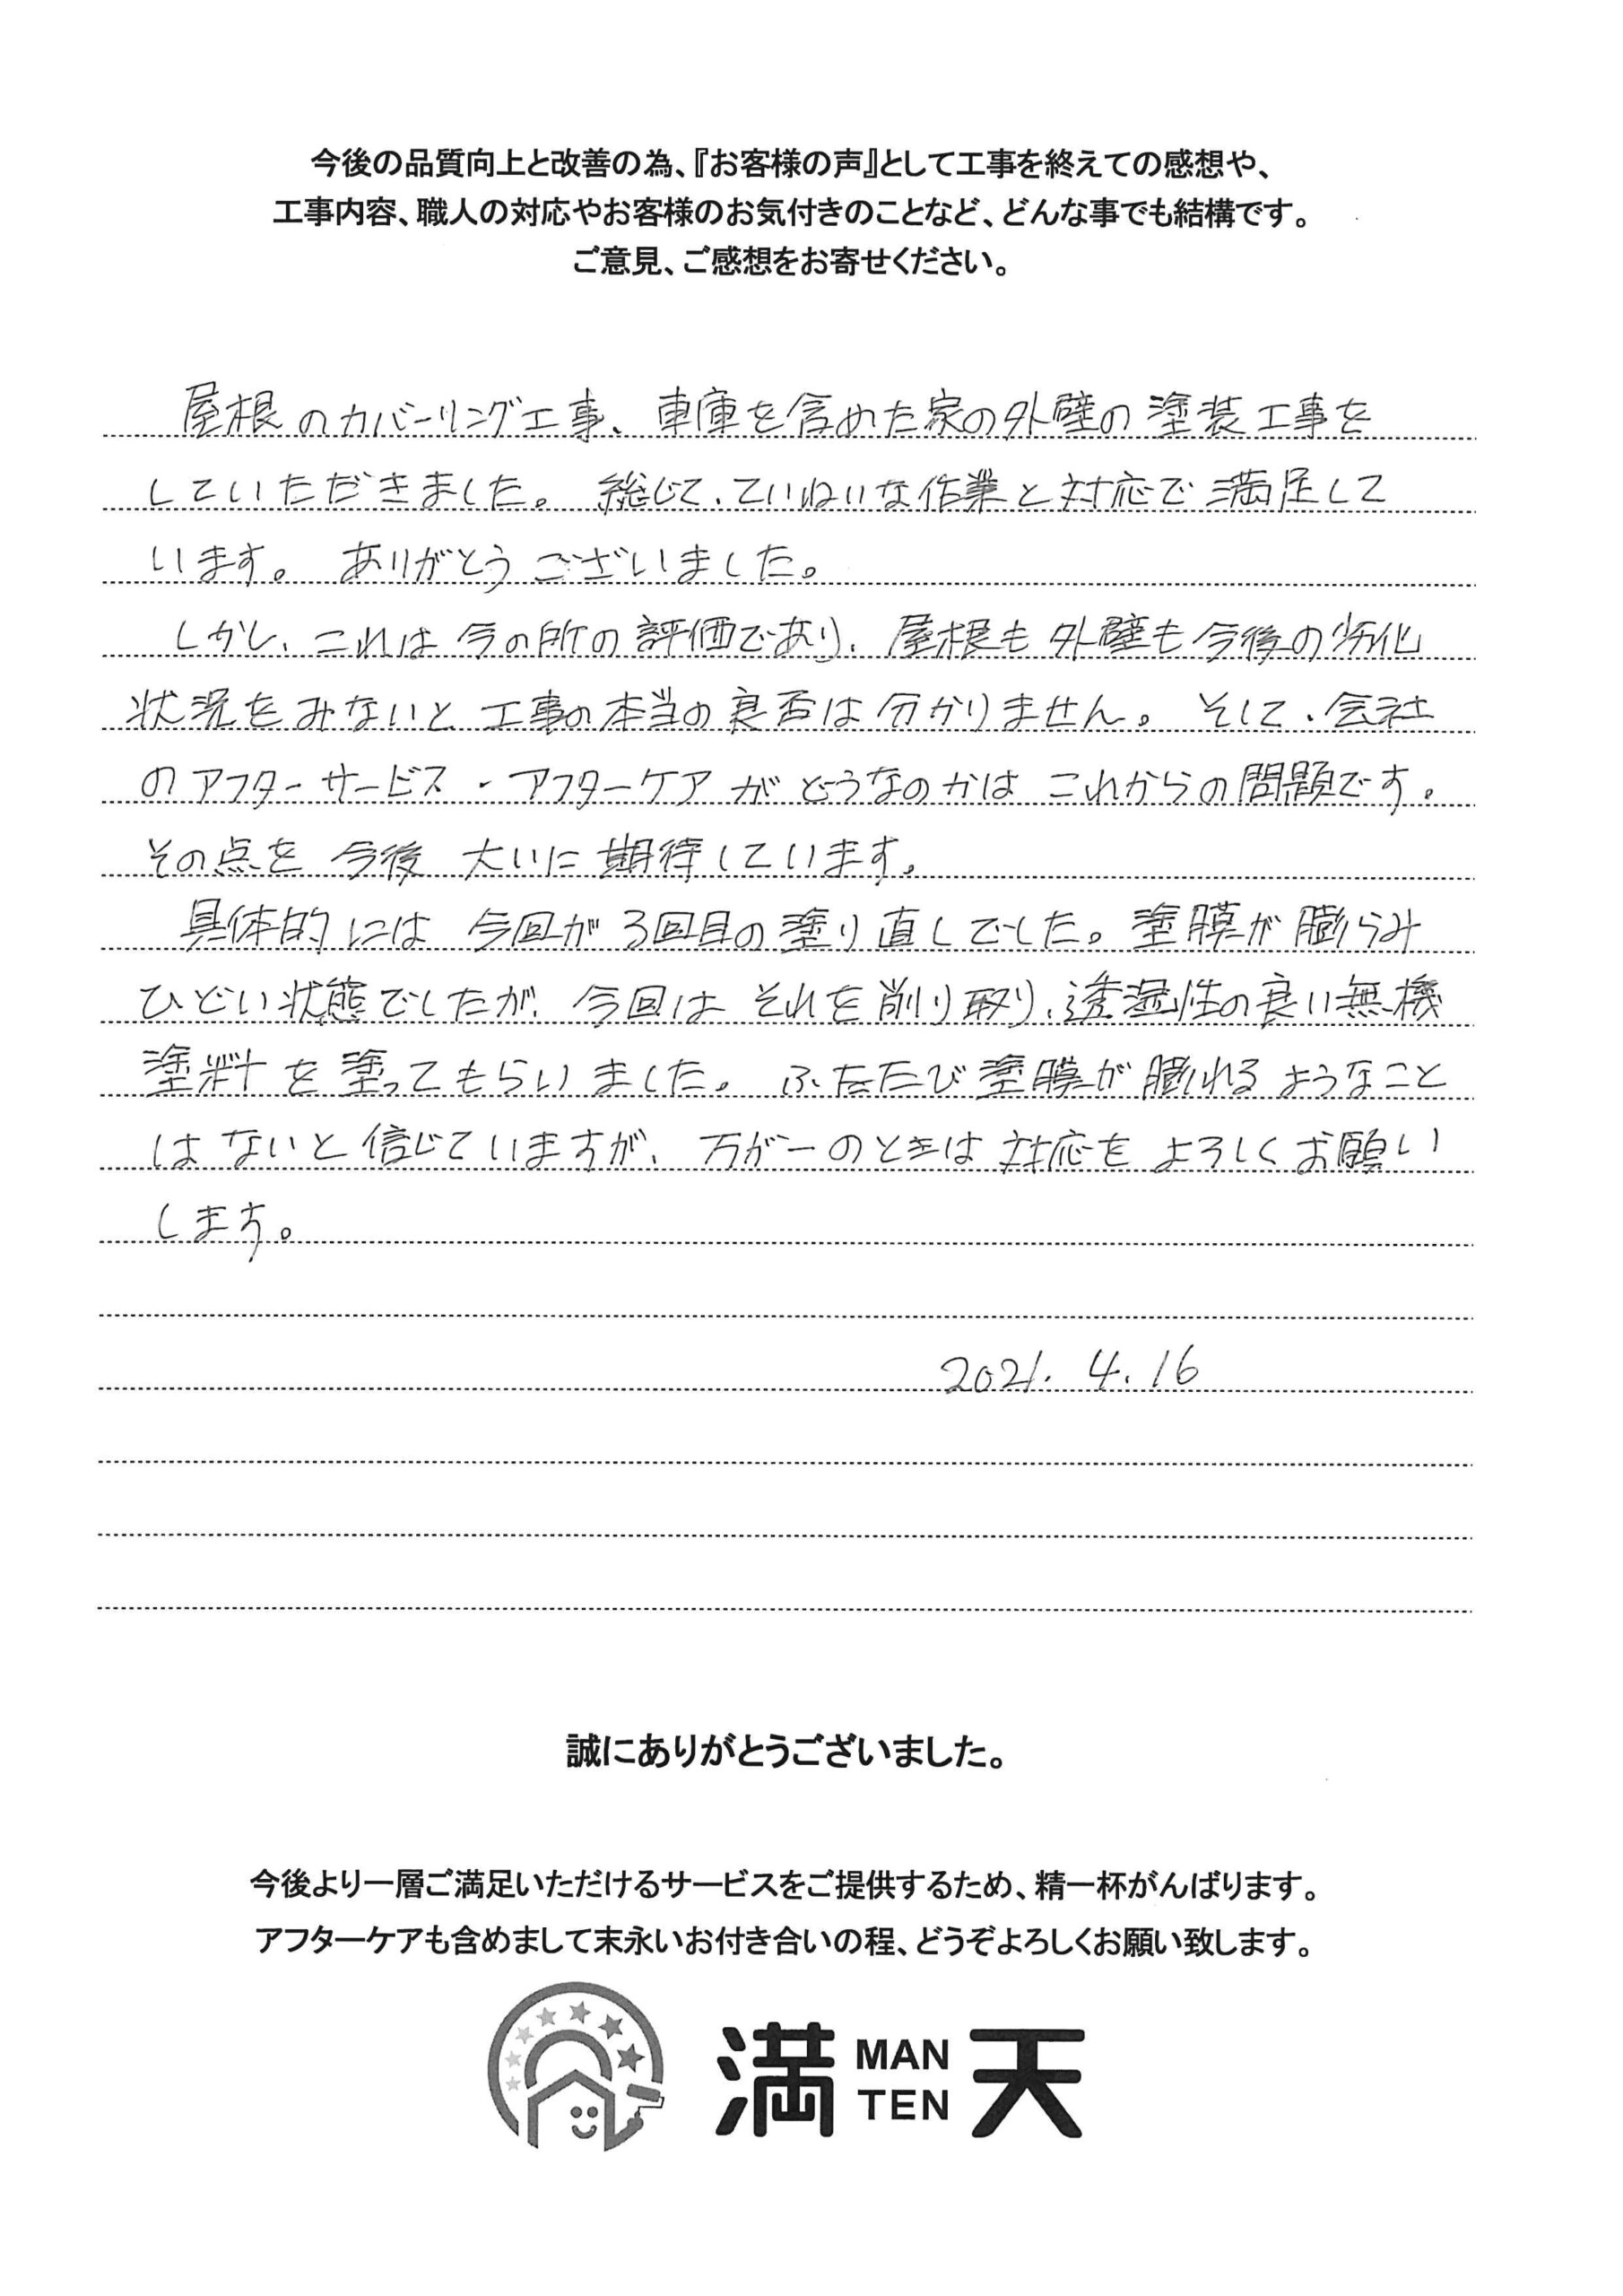 今後の品質向上と改善の為、『お客様の声』として工事を終えての感想や、
工事内容、職人の対応やお客様のお気付きのことなど、どんな事でも結構です。
ご意見、ご感想をお寄せください。
屋根のカバーリング工事、車庫を含めた家の外壁の塗装工事を
していただきました。総じて、ていねいな作業と対応で満足して
います。ありがとうございました。
しかし、これは今の所の評価であり、屋根も外壁も今後の劣化
状況をみないと工事の本当の良否は分かりません。そして、会社
のアフターサービス・アフターケアがどうなのかはこれからの問題です。
その点を今後大いに期待しています。
具体的には今回が3回目の塗り直しでした。塗膜が膨らみ
ひどい状態でしたが、今回はそれを削り取り、透湿性の良い無機
塗料を塗ってもらいました。ふたたび塗膜が膨れるようなこと
はないと信じていますが、万が一のときは対応をよろしくお願い
します。
2021.4.16
誠にありがとうございました。
今後より一層ご満足いただけるサービスをご提供するため、精一杯がんばります。
アフターケアも含めまして末永いお付き合いの程、どうぞよろしくお願い致します。
満天 MAN TEN